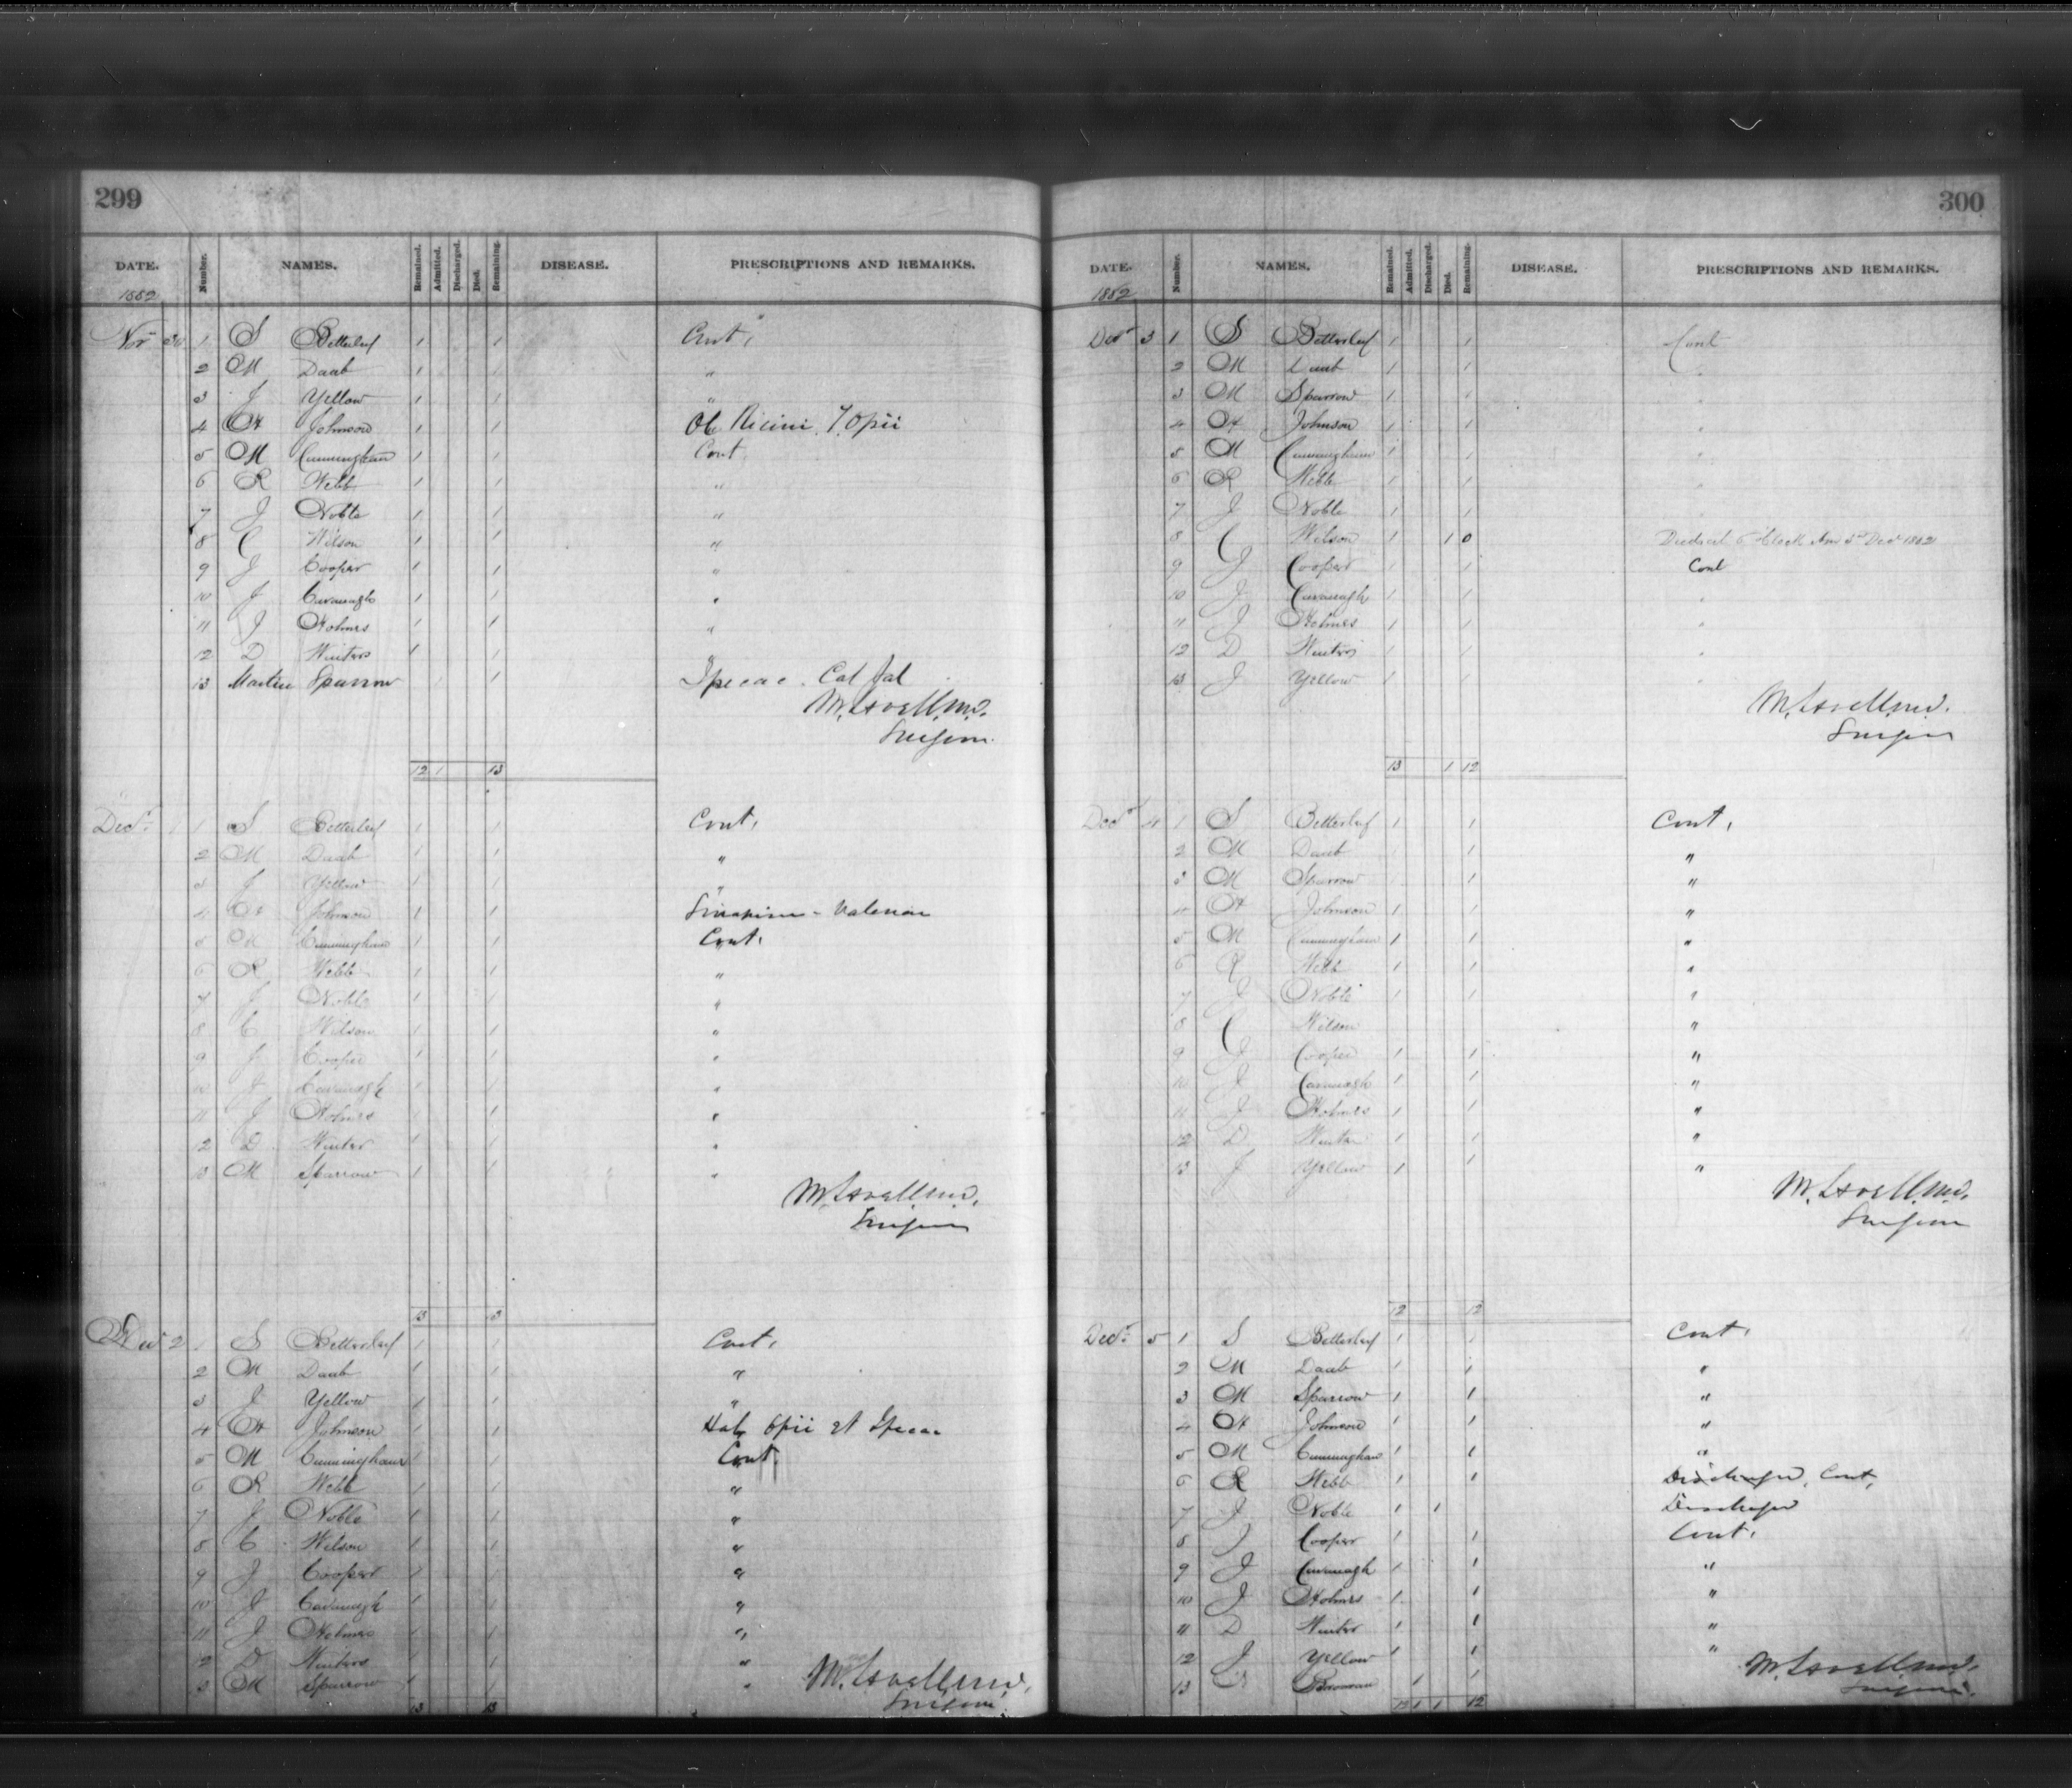 299
DATE. Number. NAMES. Remained. Admitted. Discharged. Died. Remaining. DISEASE. PRESCRIPTIONS AND REMARKS.
1882
Nov 30 1 S Betterleef 1 1 Cont,
2 M Daab 1 1 "
3 J Yellow 1 1 "
4 H Johnson 1 1 Ol Ricini. T. Opii
5 M Cunningham 1 1 Cont
6 R Webb 1 1 "
7 J Noble 1 1 "
8 C Wilson 1 1 "
9 J Cooper 1 1 "
10 J Cavanagh 1 1 "
11 J Holmes 1 1 "
12 D Winters 1 1 "
13 Martin Sparrow 1 1 Ipecac. Cal Jal
M. Lovell M.D.
Surgeon.
12 1 13
Decr. 1 1 S Betterleef 1 1 Cont,
2 M Daab 1 1 "
3 J Yellow 1 1 "
4 H Johnson 1 1 Sinapism - Valerian
5 M Cunningham 1 1 Cont.
6 R Webb 1 1 "
7 J Noble 1 1 "
8 C Wilson 1 1 "
9 J Cooper 1 1 "
10 J Cavanagh 1 1 "
11 J Holmes 1 1 "
12 D Winter 1 1 "
13 M Sparrow 1 1 "
M. Lovell M.D.
Surgeon
13 13
Dec 2 1 S Betterleef 1 1 Cont,
2 M Daab 1 1 "
3 J Yellow 1 1 "
4 H Johnson 1 1 Opii et Ipecac
5 M Cunningham 1 1 Cont.
6 R Webb 1 1 "
7 J Noble 1 1 "
8 C Wilson 1 1 "
9 J Cooper 1 1 "
10 J Cavanagh 1 1 "
11 J Holmes 1 1 "
12 D Winters 1 1 "
13 M Sparrow 1 1 "
M. Lovell M.D.
Surgeon
13 13
300
DATE. Number. NAMES. Remained. Admitted. Discharged. Died. Remaining. DISEASE. PRESCRIPTIONS AND REMARKS.
1882
Decr 3 1 S Betterleef 1 1 Cont
2 M Daab 1 1 "
3 M Sparrow 1 1 "
4 H Johnson 1 1 "
5 M Cunningham 1 1 "
6 R Webb 1 1 "
7 J Noble 1 1
8 C Wilson 1 1 0 Died at 5 Clock Am 3rd Dec 1882
9 J Cooper 1 1 Cont
10 J Cavanagh 1 1 "
11 J Holmes 1 1 "
12 D Winters 1 1 "
13 J Yellow 1 1 "
M. Lovell M.D.
Surgeon
13 1 12
Decr 4 1 S Betterleef 1 1 Cont,
2 M Daab 1 "
3 M Sparrow 1 "
4 H Johnson 1 1 "
5 M Cunningham 1 1 "
6 R Webb 1 1 "
7 J Noble 1 1 "
8 C Wilson "
9 J Cooper 1 1 "
10 J Cavanagh 1 1 "
11 J Holmes 1 1 "
12 D Winter 1 1 "
13 J Yellow 1 1 "
M. Lovell M.D.
Surgeon
12 12
Decr. 5 1 S Betterleef 1 1 Cont,
2 M Daab 1 1 "
3 M Sparrow 1 1 "
4 H Johnson 1 1 "
5 M Cunningham 1 1 "
6 R Webb 1 1 Discharged, Cont,
7 J Noble 1 1 Discharged
8 J Cooper 1 1 Cont,
9 J Cavanagh 1 1 "
10 J Holmes 1 1 "
11 D Winter 1 1 "
12 J Yellow 1 1 "
13 1 1
M. Lovell M.D.
Surgeon.
12 1 1 12